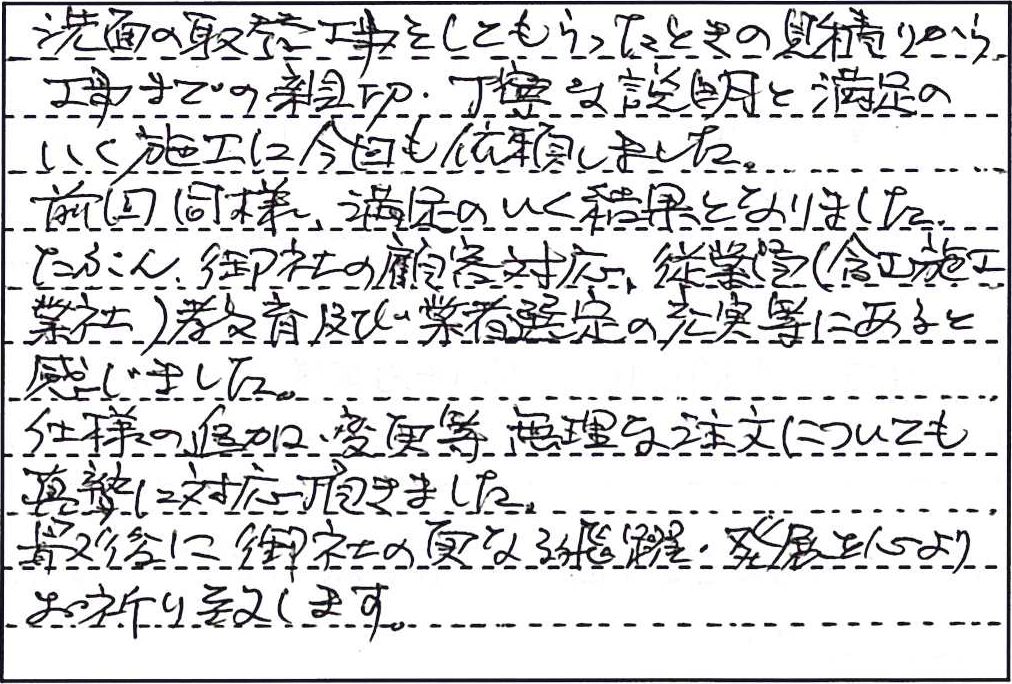 洗面の取替工事をしてもらったときの見積りから
工事までの親切・丁寧な説明と満足の
いく施工に今回も依頼しました。
前回同様、満足のいく結果となりました。
たぶん、御社の顧客対応、従業員(含む施工
業社)教育及び業者選定の充実等にあると
感じました。
仕様の追加、変更等無理な注文についても
真摯に対応頂きました。
最後に御社の更なる飛躍・発展を心より
お祈り致します。